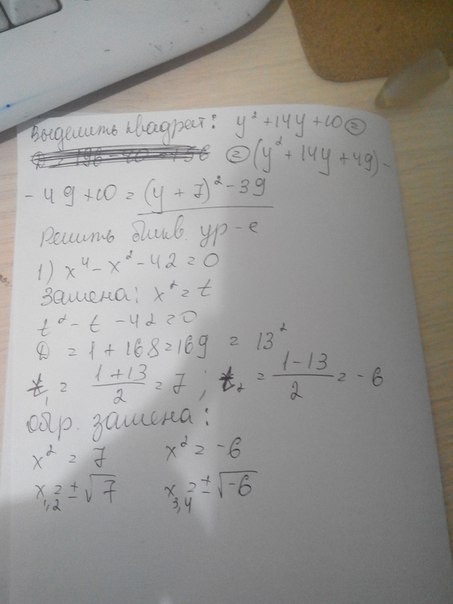 Выделить квадрат: y² + 14y + 10 =
D = 196 - 40 = 156 = (y² + 14y + 49) -
- 49 + 10 = (y + 7)² - 39
Решить бикв. ур-е
1) x⁴ - x² - 42 = 0
Замена: x² = t
t² - t - 42 = 0
D = 1 + 168 = 169 = 13²
t₁ = (1 + 13)/2 = 7 ; t₂ = (1 - 13)/2 = -6
обр. замена:
x² = 7 x² = -6
x₁,₂ = ±√7 x₃,₄ = ±√-6